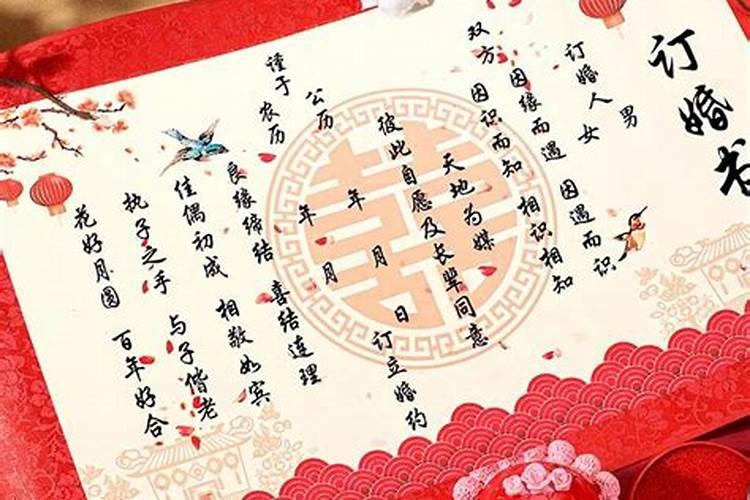 订婚书
男
订婚人 女
双方 因缘而遇 因遇而识
因识而知 相识相知
天地为媒
彼此自愿及长辈同意
谨于 公历 年 月 日 订立婚约
农历 年 月
良缘缔结 喜结连理
佳偶初成 相敬如宾
执子之手 与子偕老
花好月圆 百年好合